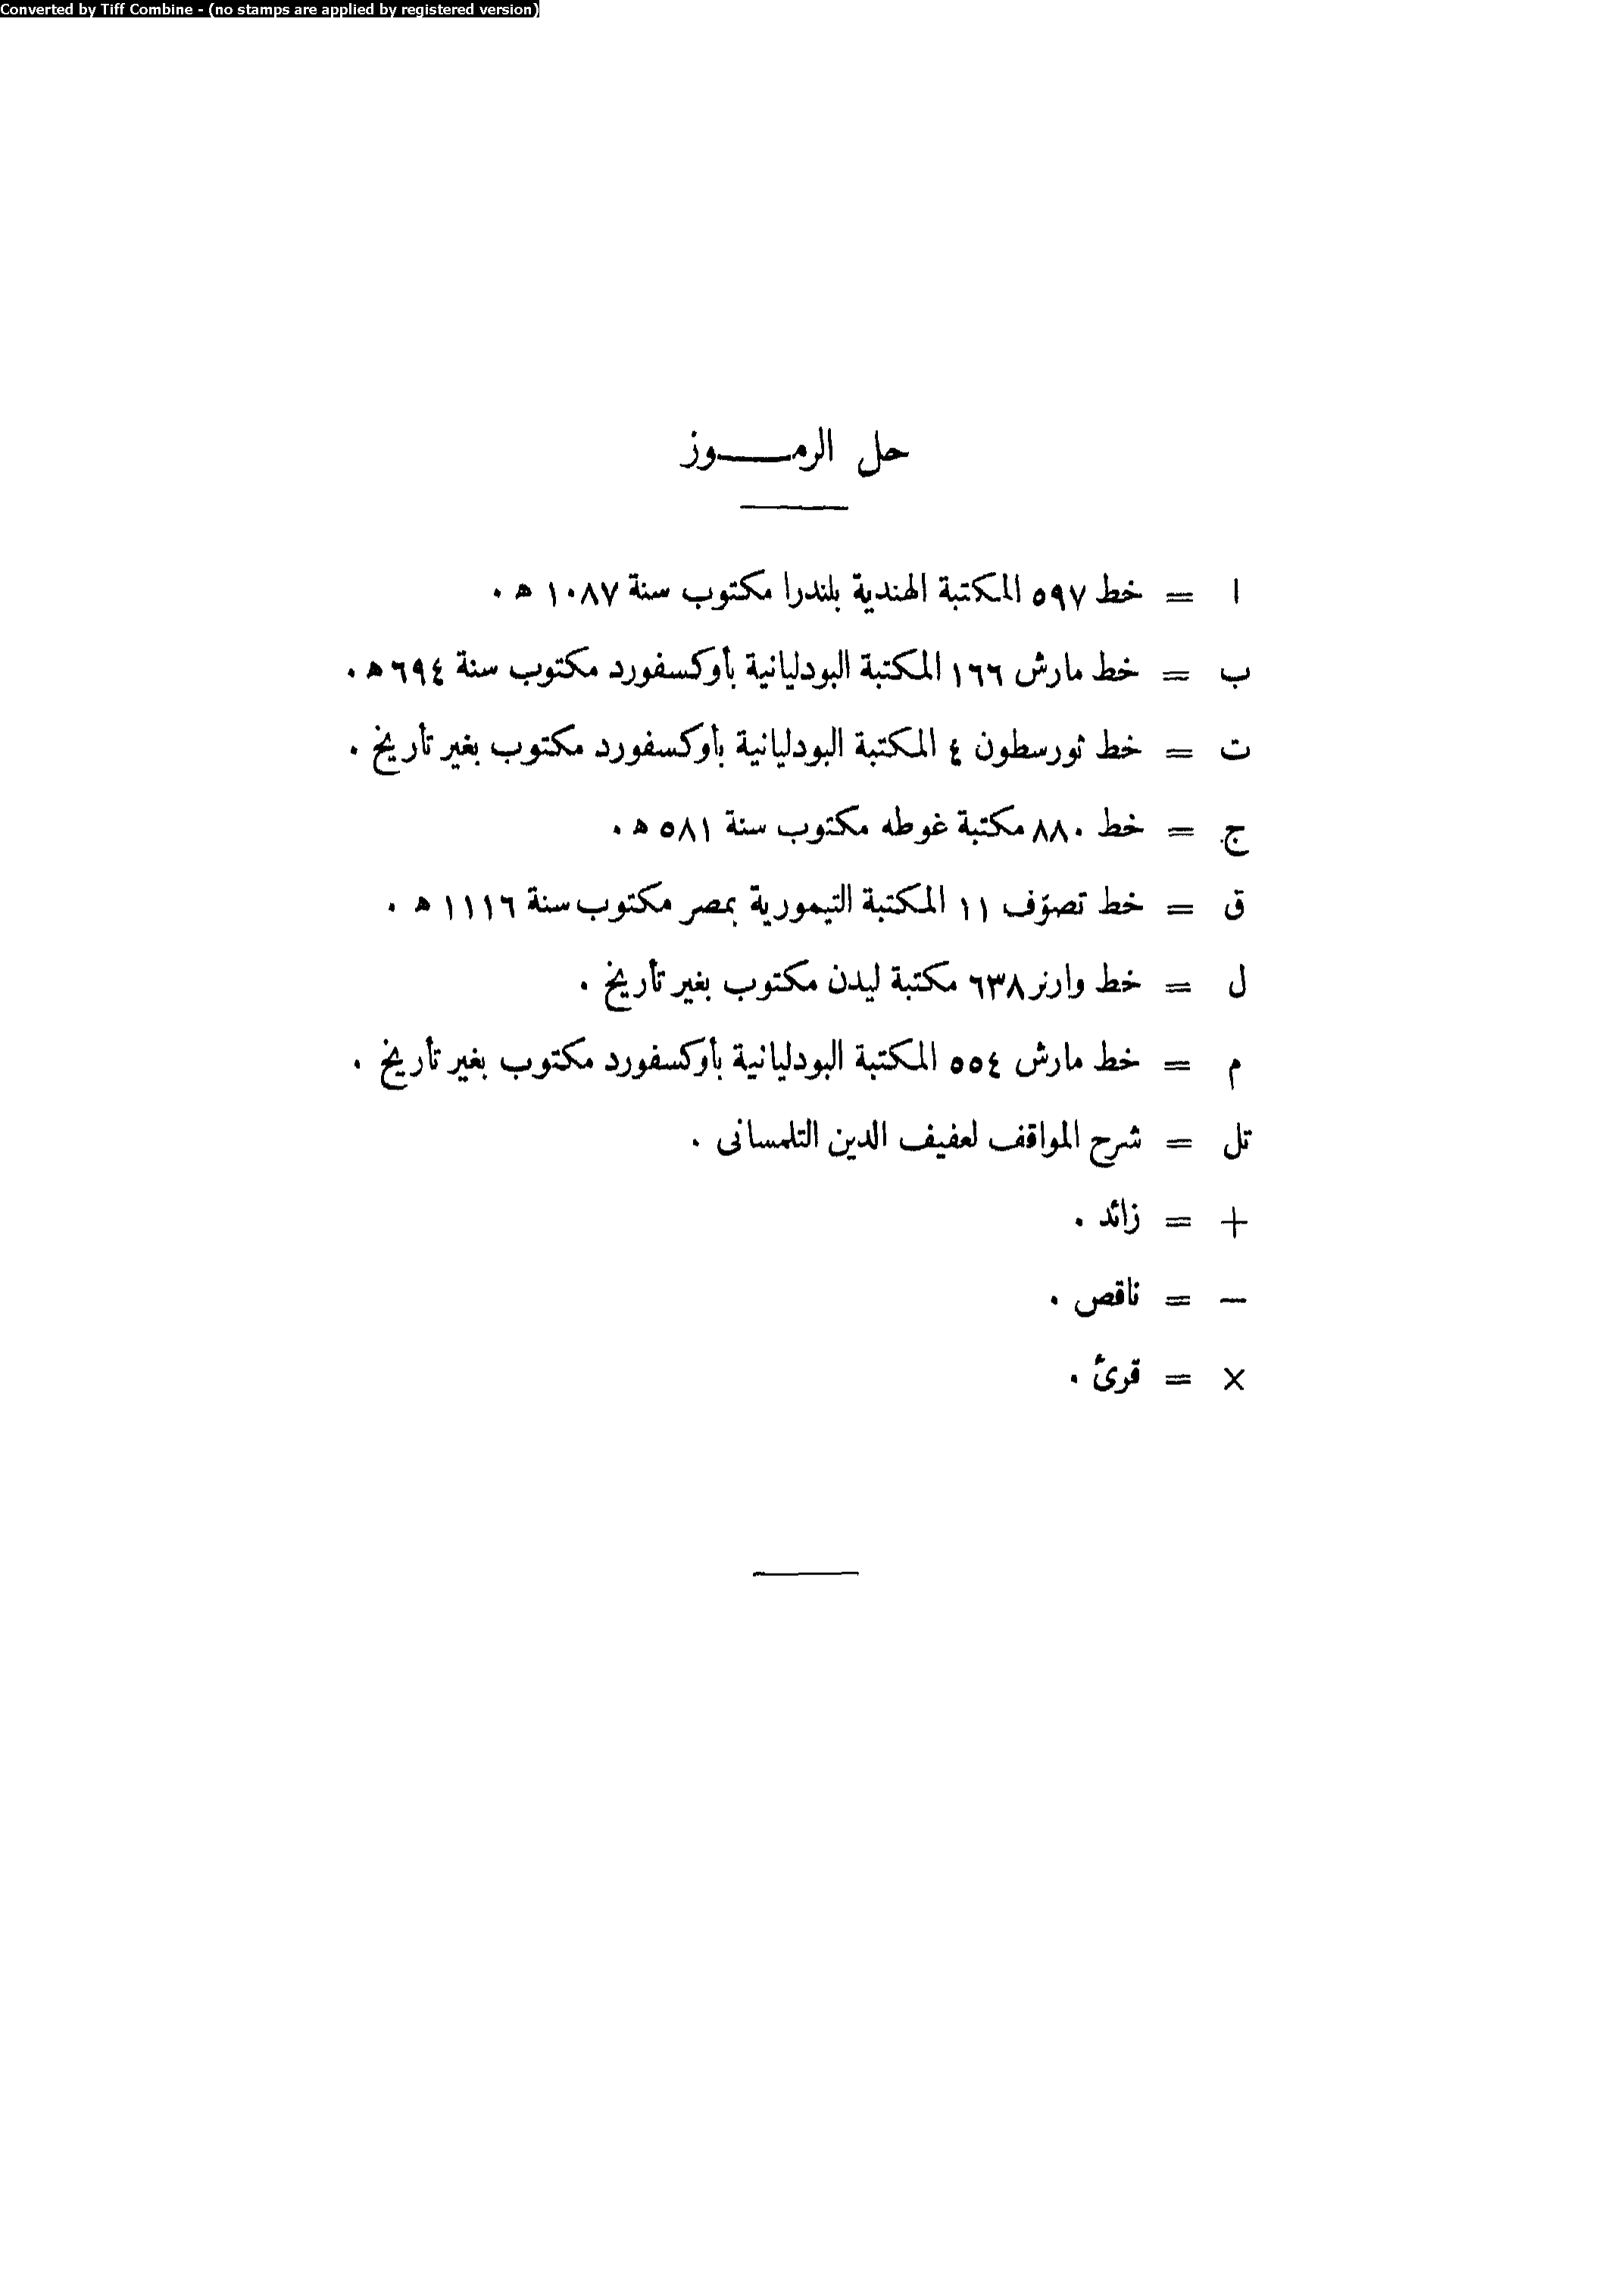 Converted by Tiff Combine - (no stamps are applied by registered version)
حل الرمـــوز
ا = خط ٥٩٧ المكتبة الهندية بلندرا مكتوب سنة ١٠٨٧ ه .
ب = خط مارش ١٦٦ المكتبة البودليانية بأوكسفورد مكتوب سنة ٦٩٤ ه .
ت = خط ثورسطون ٤ المكتبة البودليانية بأوكسفورد مكتوب بغير تأريخ .
ج = خط ٨٨٠ مكتبة غوطه مكتوب سنة ٥٨١ ه .
ق = خط تصوّف ١١ المكتبة التيمورية بمصر مكتوب سنة ١١١٦ ه .
ل = خط وارنر ٦٣٨ مكتبة ليدن مكتوب بغير تأريخ .
م = خط مارش ٥٥٤ المكتبة البودليانية بأوكسفورد مكتوب بغير تأريخ .
تل = شرح المواقف لعفيف الدين التلمسانى .
+ = زائد .
– = ناقص .
× = قرئ .